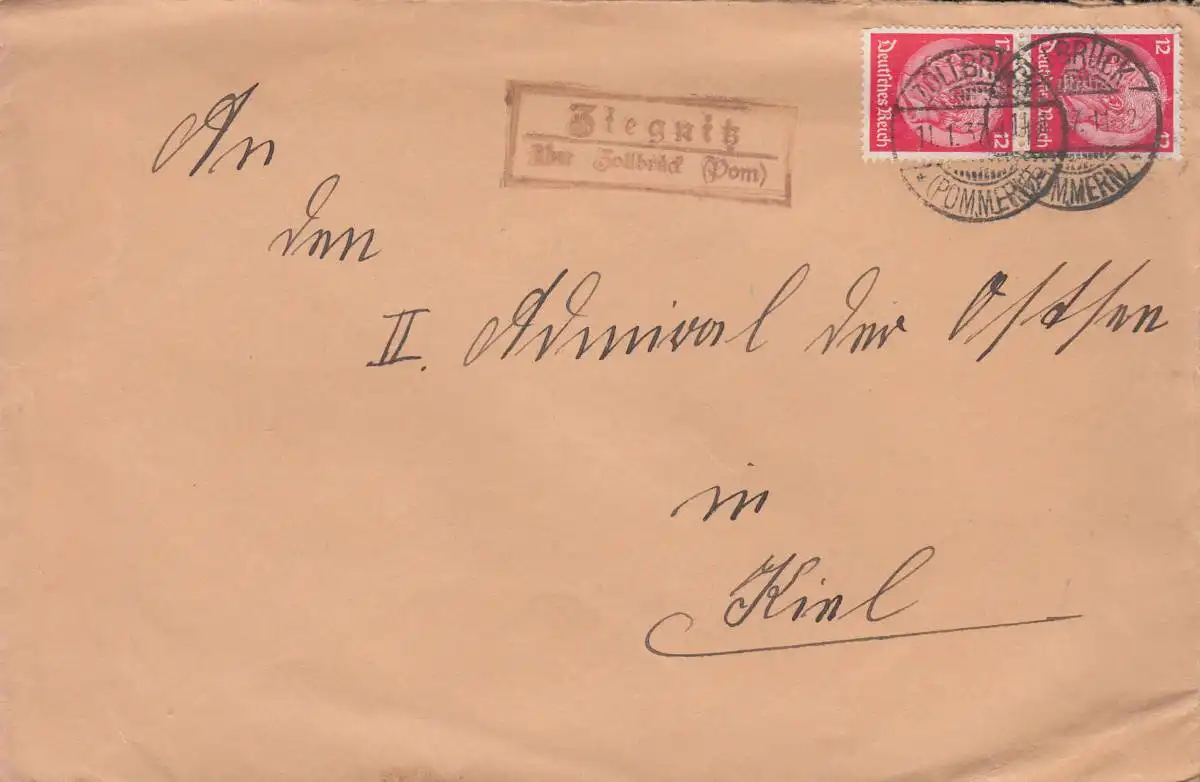 Ziegnitz
über Zollbrück (Pom)
12
Deutsches Reich
12
12
Deutsches Reich
12
ZOLLBRÜCK
11.1.37
(POMMERN)
BRÜCK
(POMMERN)
An
den
II. Admiral der Ostsee
in
Kiel